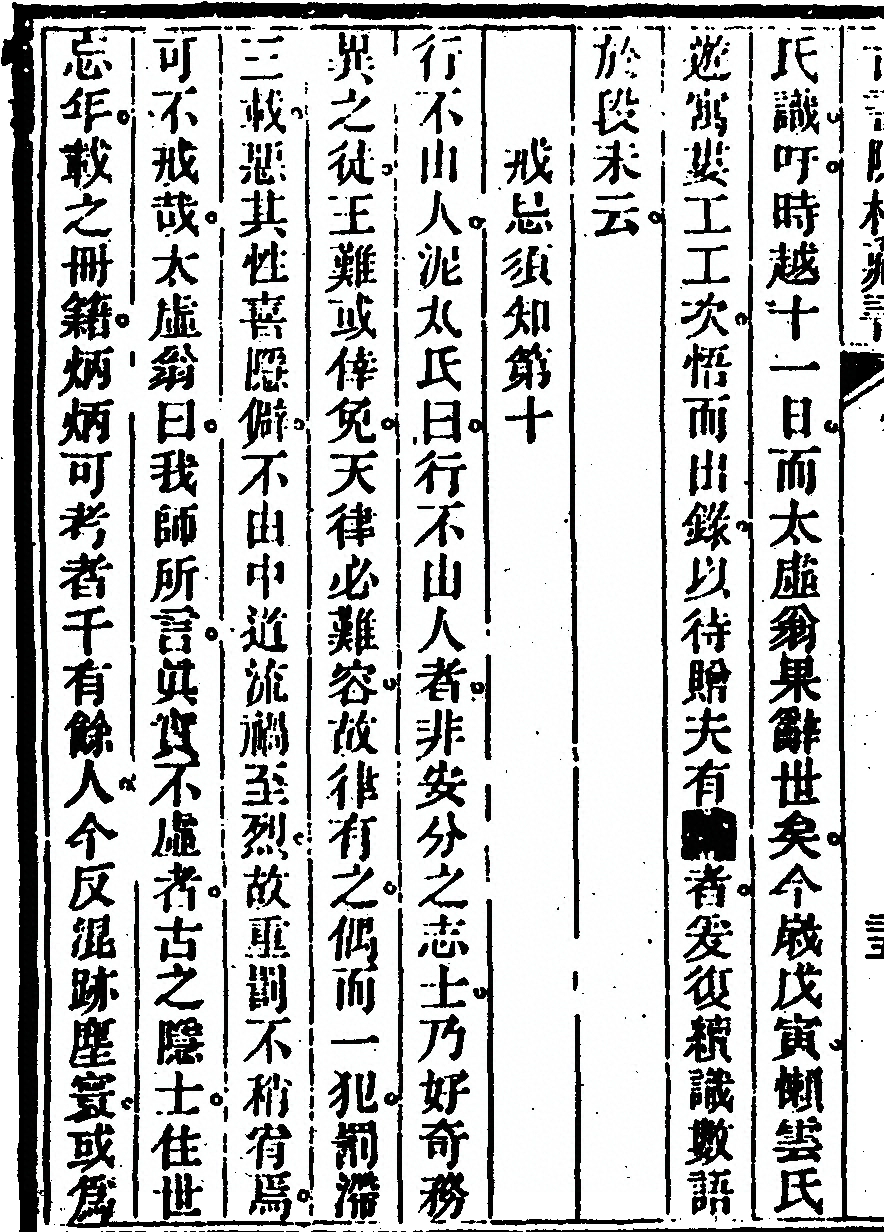 氏識吁時越十一日而太虛翁果辭世矣今嵗戊寅懶雲氏
遊寓婁工工次悟而出錄以待贈夫有者爰復續識數語
於段末云
戒忌須知第十
行不由人泥丸氏曰行不由人者非安分之志士乃好奇務
異之徒王難或倖免天律必難容故律有之偶而一犯罰滯
三載惡其性喜隱僻不由中道流禍至烈故重罰不稍宥焉
可不戒哉太虛翁曰我師所言眞實不虛者古之隱士住世
忘年載之冊籍炳炳可考者千有餘人今反混跡塵寰或爲